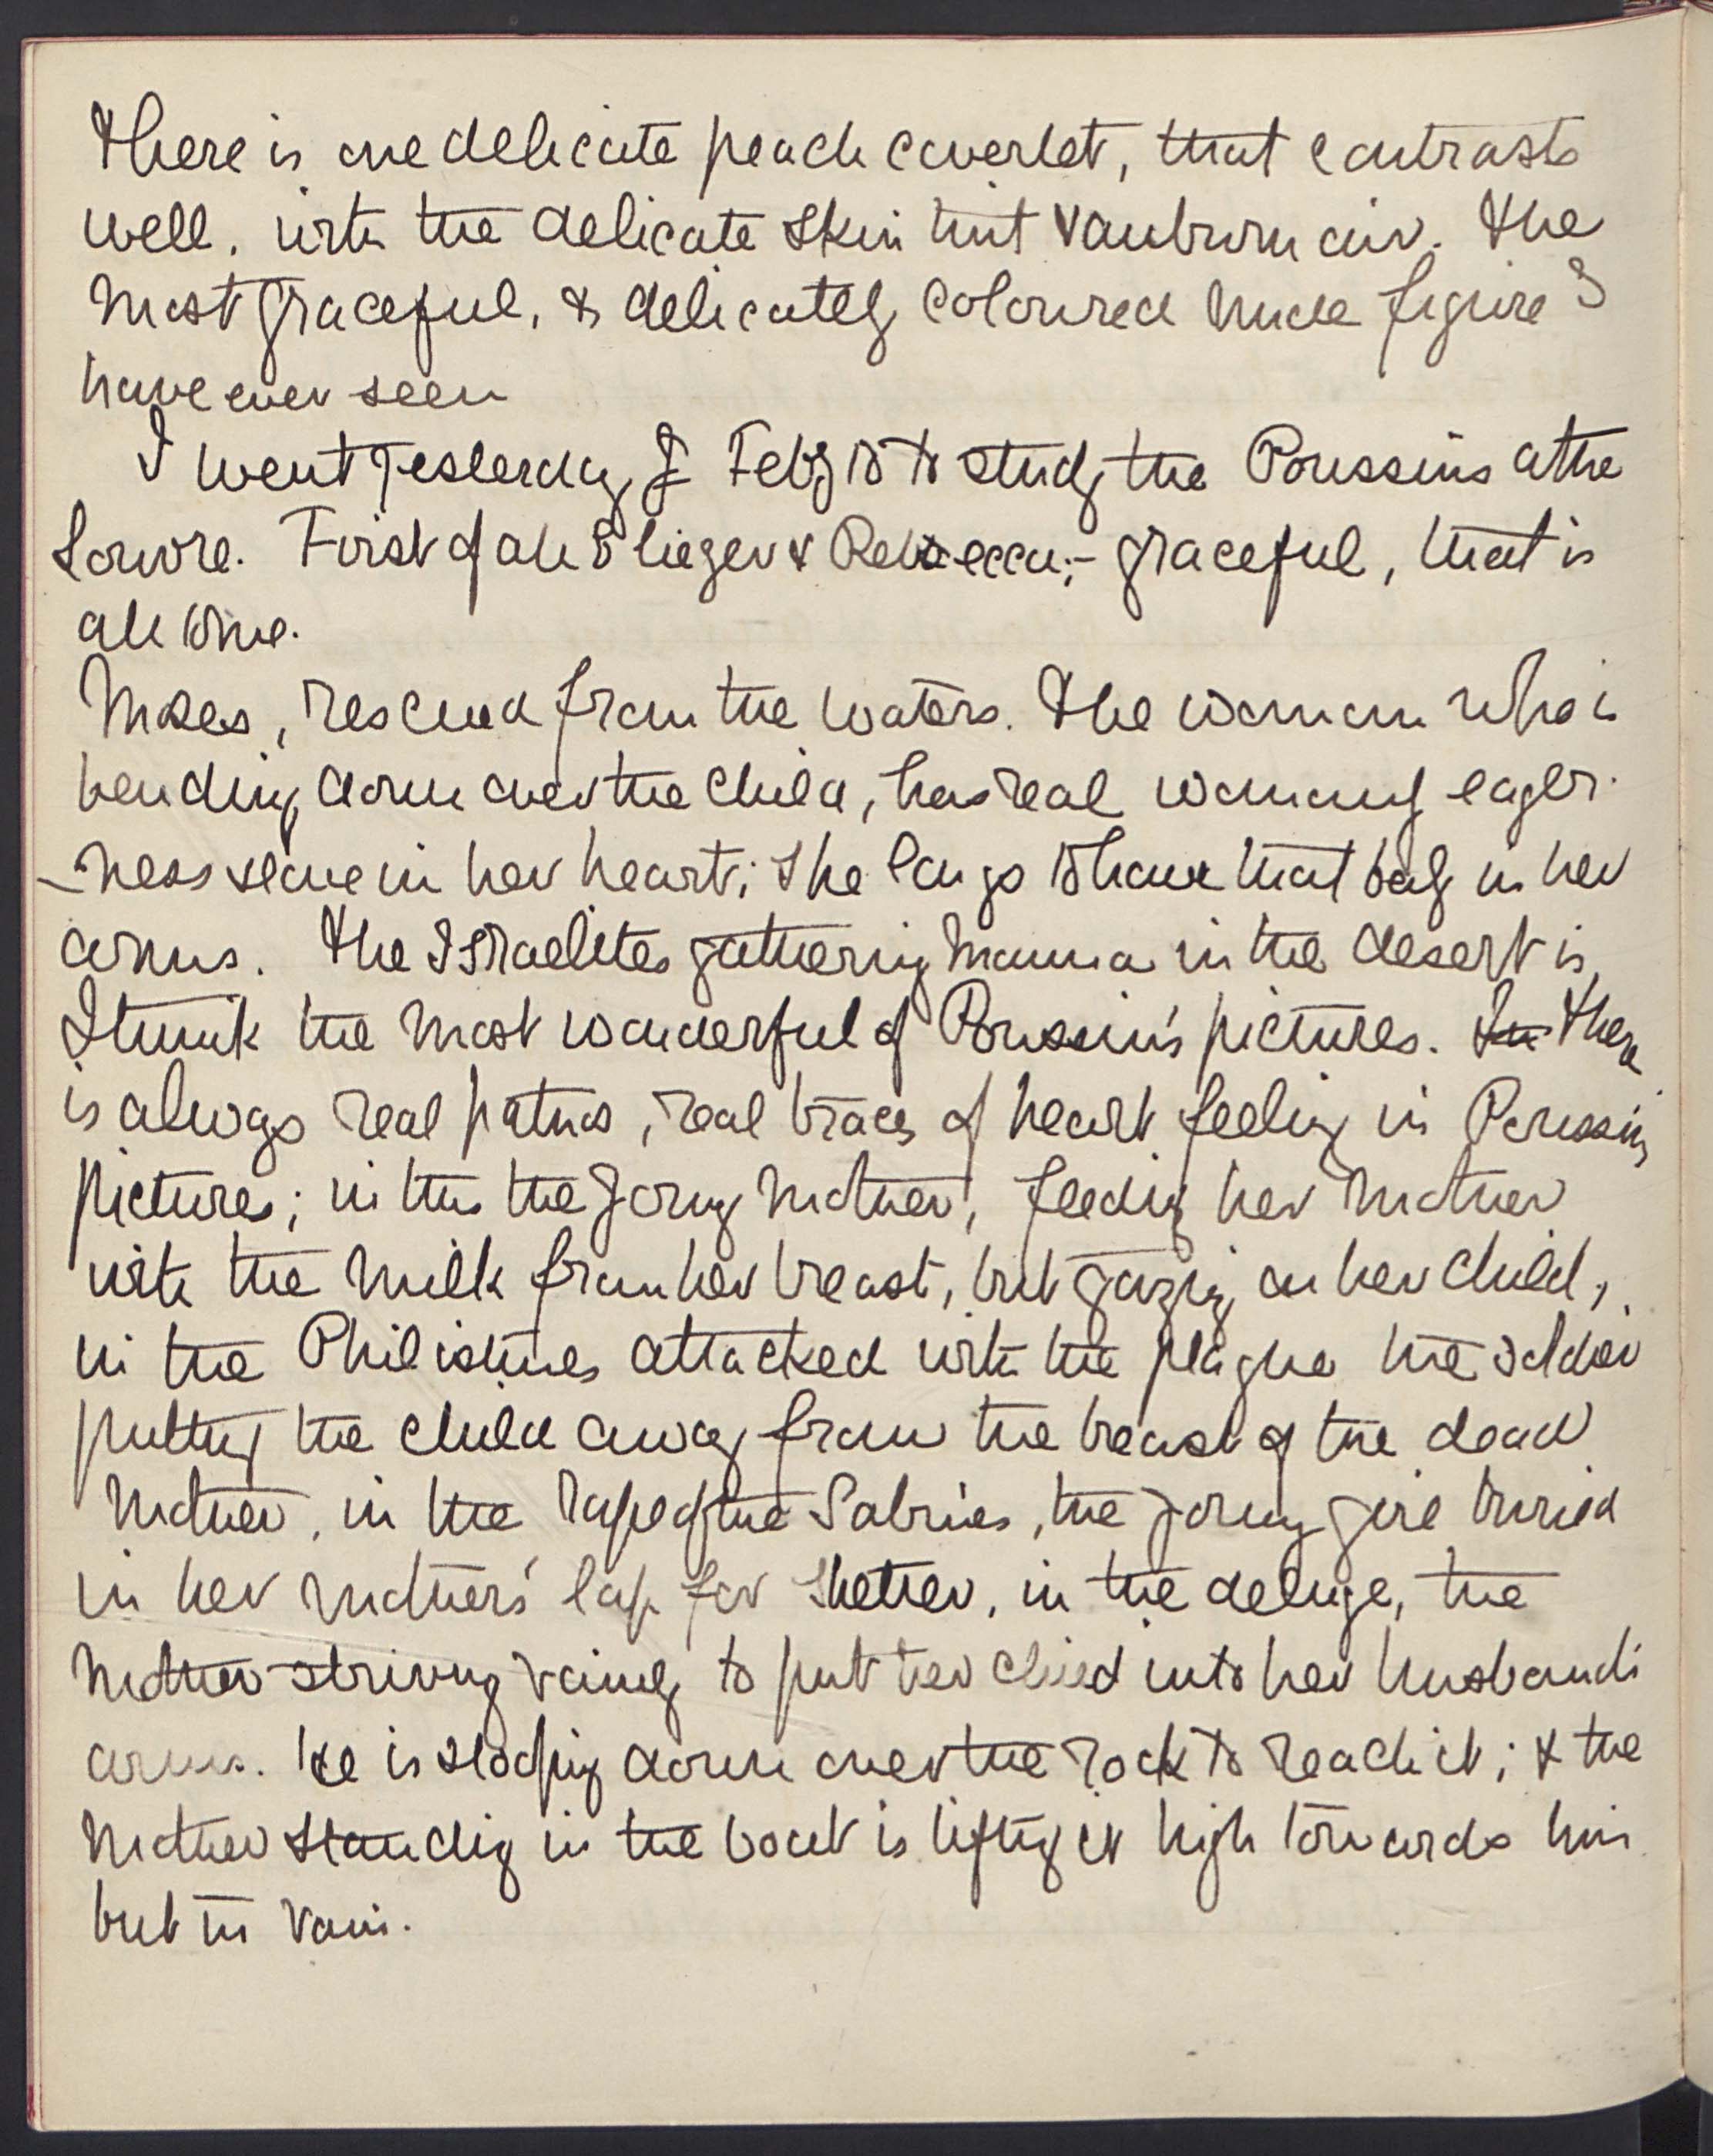 There is one delicate peach coverlet, that contrasts
well, with the delicate skin tint & auburn air. The
most graceful, & delicately coloured nude figure I
have ever seen
I went yesterday Feby 18 to study the Poussins at the
Louvre. First of all Eliezer & Rebecca;- graceful, that is
all
Moses, rescued from the waters. The woman who is
bending down over the child, has real womanly eager-
-ness & love in her heart; she longs to have that baby in her
arms. The Israelites gathering manna in the desert is,
I think the most wonderful of Poussin's pictures. In There
is always real pathos, real traces of heart feeling in Poussin's
pictures; in this the young mother, feeding her mother
with the milk from her breast, but gazing on her child,
in the Philistines attacked with the plague the soldier
putting the child away from the breast of the dead
mother, in the rape of the Sabines, the young girl buried
in her mother's lap for shelter, in the deluge, the
mother striving vainly to put her child into her husband's
arms. He is stooping down over the rock to reach it; & the
mother standing in the boat is lifting it high towards him
but in vain.